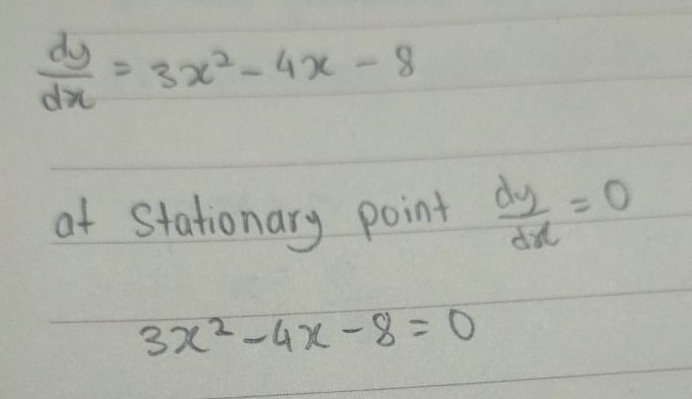 dy/dx = 3x² - 4x - 8
at Stationary point dy/dx = 0
3x² - 4x - 8 = 0